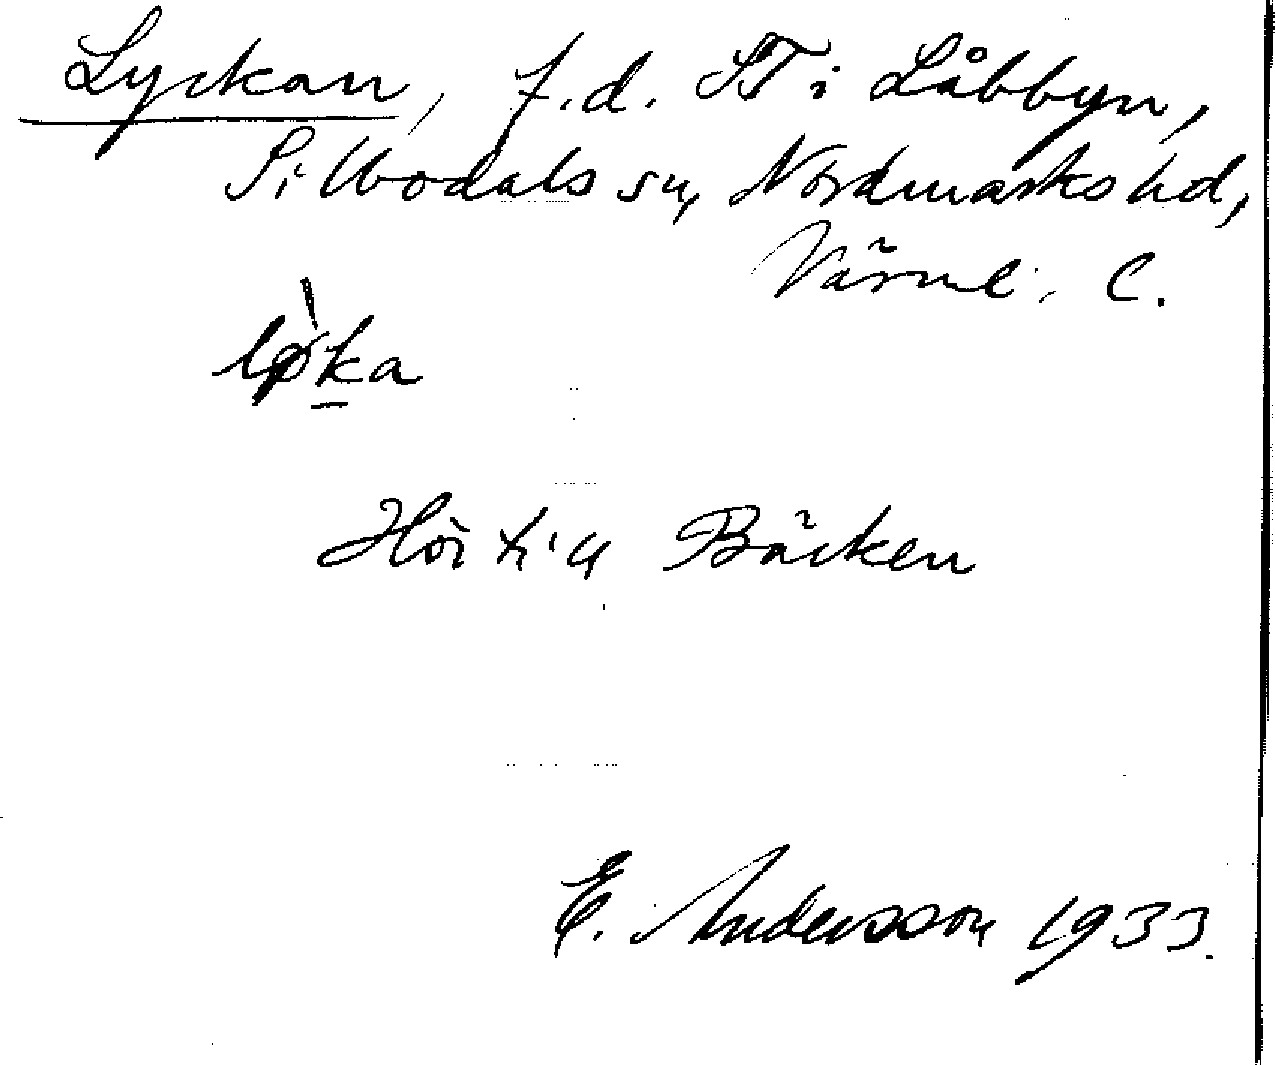 Lyckan, f.d. ST i Låbbyn,
Silbodals sn, Nordmarks hd,
Värml. l.
lø̀ka
Hör till Bäcken
E. Andersson 1933.